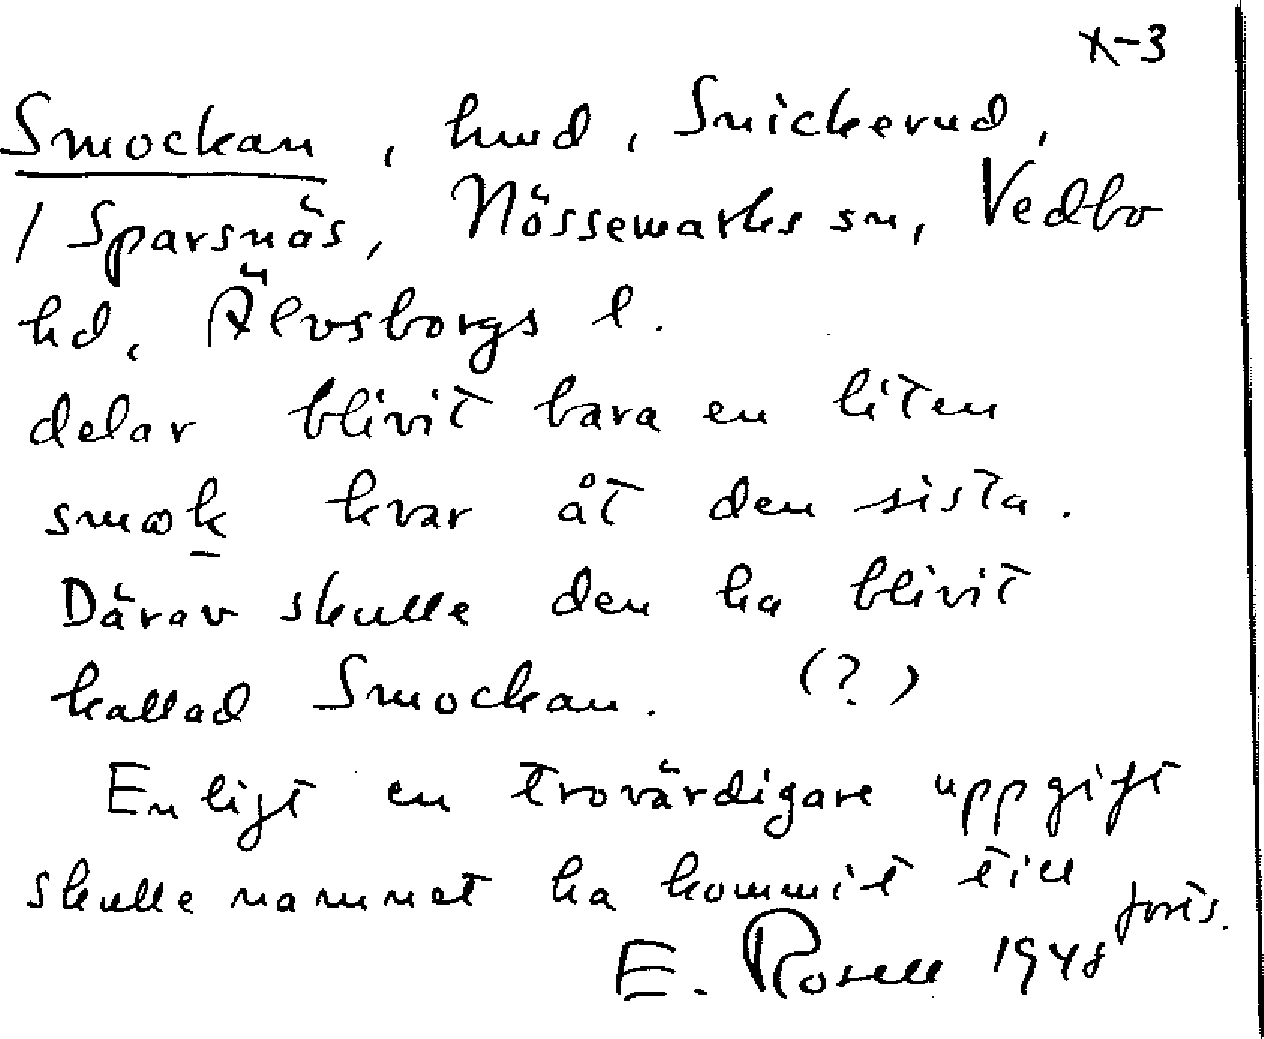 X-3
Smockan, hmd, Snickerud,
/ Sparsnäs, Nössemarks sn, Vedbo
hd, Älvsborgs l.
delar blivit bara en liten
smok kvar åt den sista.
Därav skulle den ha blivit
kallad Smockan. (?)
Enligt en trovärdigare uppgift
skulle namnet ha kommit till
forts.
E. Rosell 1948